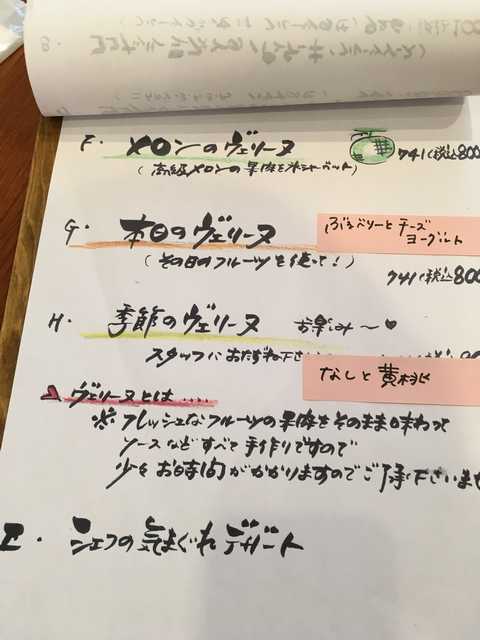 F. メロンのヴェリーヌ 741(税込800
(高級メロンの果肉を氷シャーベット)
G. 本日のヴェリーヌ
ぶるーべりーとチーズ
ヨーグルト
(その日のフルーツを使って!)
741(税込800
H. 季節のヴェリーヌ お楽しみ〜♥
スタッフにおたずね下さい
なしと黄桃
ヴェリーヌとは.....
※ フレッシュなフルーツの果肉をそのまま味わって
ソースなどすべて手作りですので
少々お時間がかかりますのでご了承下さいませ
I. シェフの気まぐれデザート